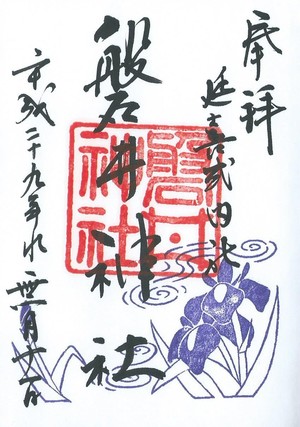 奉拝
延喜式内社
磐井神社
磐井
神社
平成二十九年水無月十一日